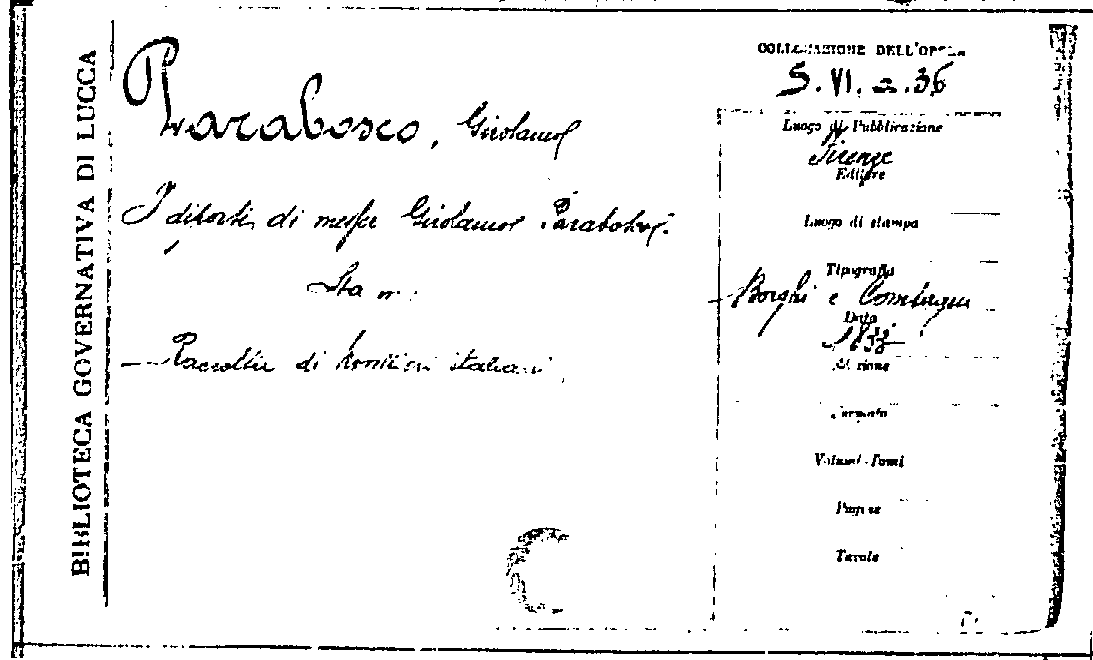 BIBLIOTECA GOVERNATIVA DI LUCCA
Parabosco, Girolamo
I diporti di messer Girolamo Parabosco.
Sta in:
Raccolta di novellieri italiani
COLLOCAZIONE DELL'OPERA
S. VI. 2. 36
Luogo di Pubblicazione
Firenze
Editore
Luogo di stampa
Tipografia
Borghi e Compagni
Data
1833
Edizione
Formato
Volumi-Tomi
Pagine
Tavole